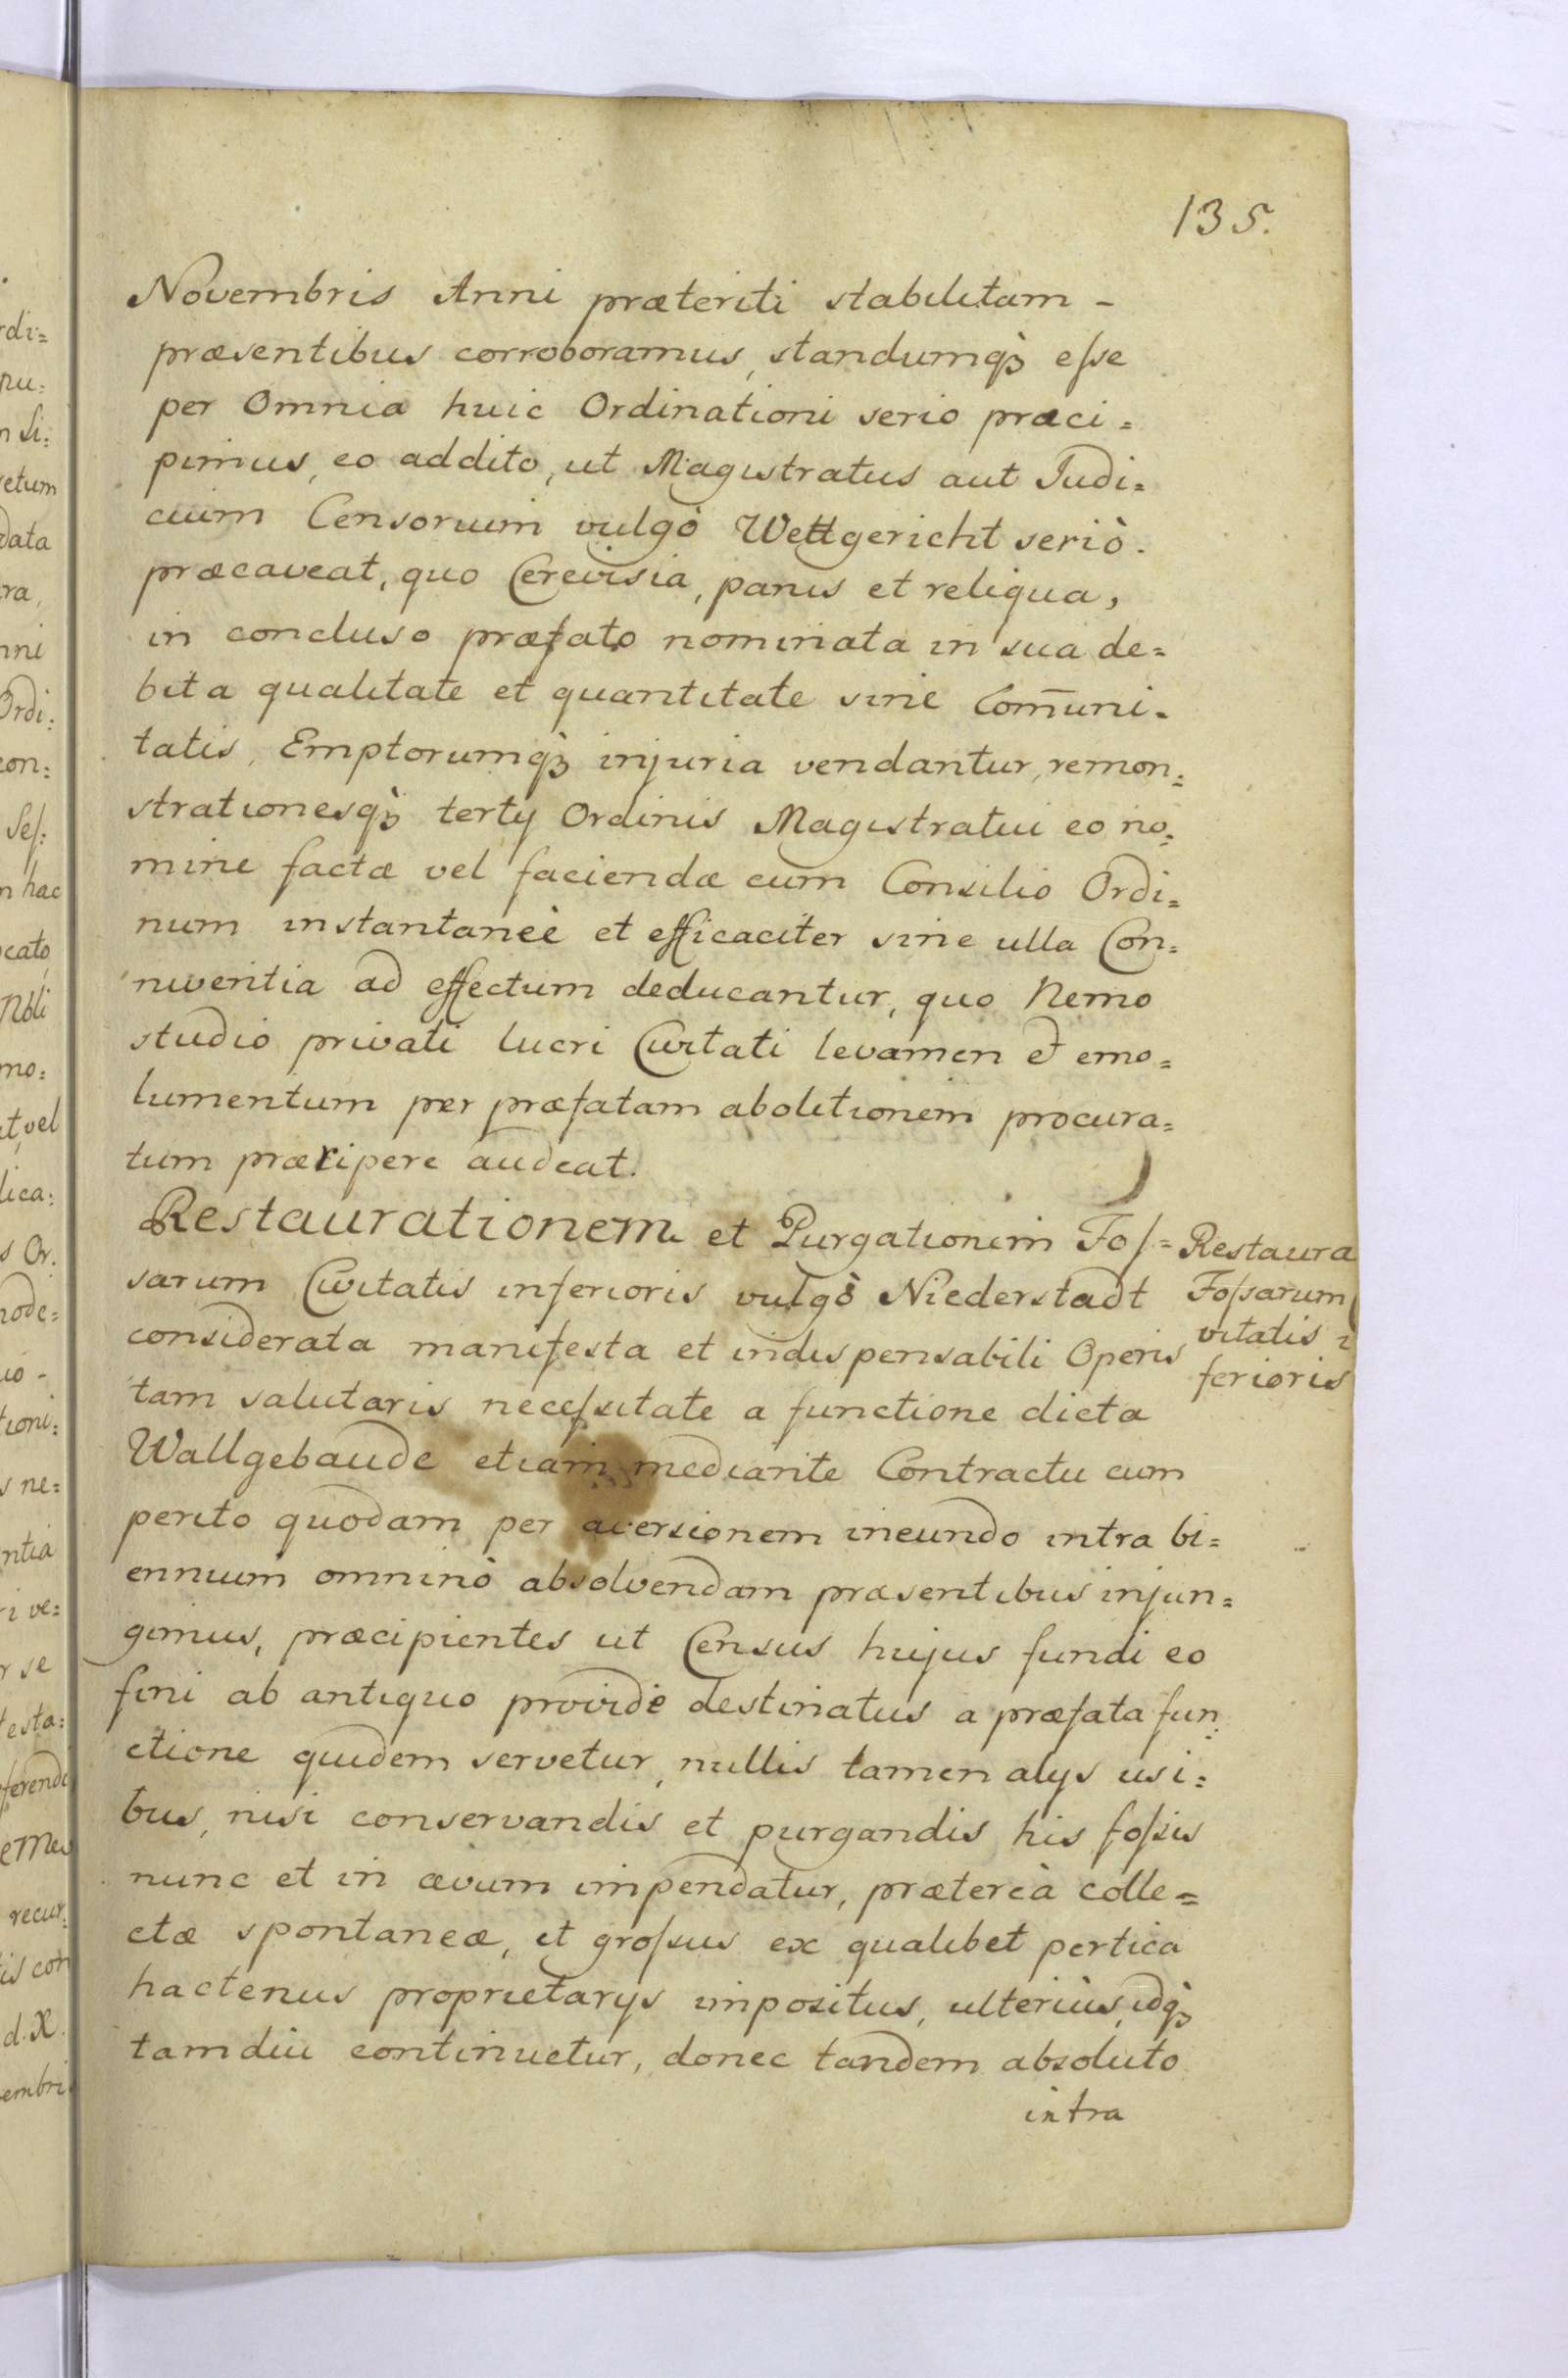 135.
Novembris Anni præteriti stabilitam -
præsentibus corroboramus, standumqꝫ eſse
per Omnia huic Ordinationi serio præci=
pimus, eo addito, ut Magistratus aut Judi=
cium Censorium vulgò Wettgericht seriò
præcaveat, quo Cerevisia, panis et reliqua,
in concluso præfato nominata in sua de=
bita qualitate et quantitate sine Com̄uni=
tatis, Emptorumqꝫ injuria vendantur, remon=
strationesqꝫ tertÿ Ordinis Magistratui eo no=
mine factæ vel faciendæ cum Consilio Ordi=
num instantaneè et efficaciter sine ulla Con=
niventia ad effectum deducantur, quo Nemo
studio privati lucri Civitati levamen et emo=
lumentum per præfatam abolitionem procura=
tum præripere audeat.
Restaurationem et Purgationem Foſ=
sarum Civitatis inferioris vulgò Niederstadt
considerata manifesta et indispensabili Operis
tam salutaris neceſsitate a functione dicta
Wallgebaude etiam mediante Contractu cum
perito quodam per aversionem ineundo intra bi=
ennium omninò absolvendam præsentibus injun=
gimus, præcipientes ut Census hujus fundi eo
fini ab antiquo providè destinatus a præfata fun=
ctione quidem servetur, nullis tamen alÿs usi=
bus, nisi conservandis et purgandis his foſsis
nunc et in ævum impendatur, prætereà colle=
ctæ spontaneæ, et groſsus ex qualibet pertica
hactenus proprietarÿs impositus, ulteriùs, idqꝫ
tamdiu continuetur, donec tandem absoluto
intra
Restaura
Foſsarum
vitatis i
ferioris
rdi=
nu=
retum
data
ra,
nni
Ordi:
con:
Seſ:
n hac
cato
Nbli
mo:
t, vel
lica:
s Or.
node=
tioni:
s ne=
ntia
ri ve=
r se
testa:
ferendi
recur:
is con
d. X.
embri